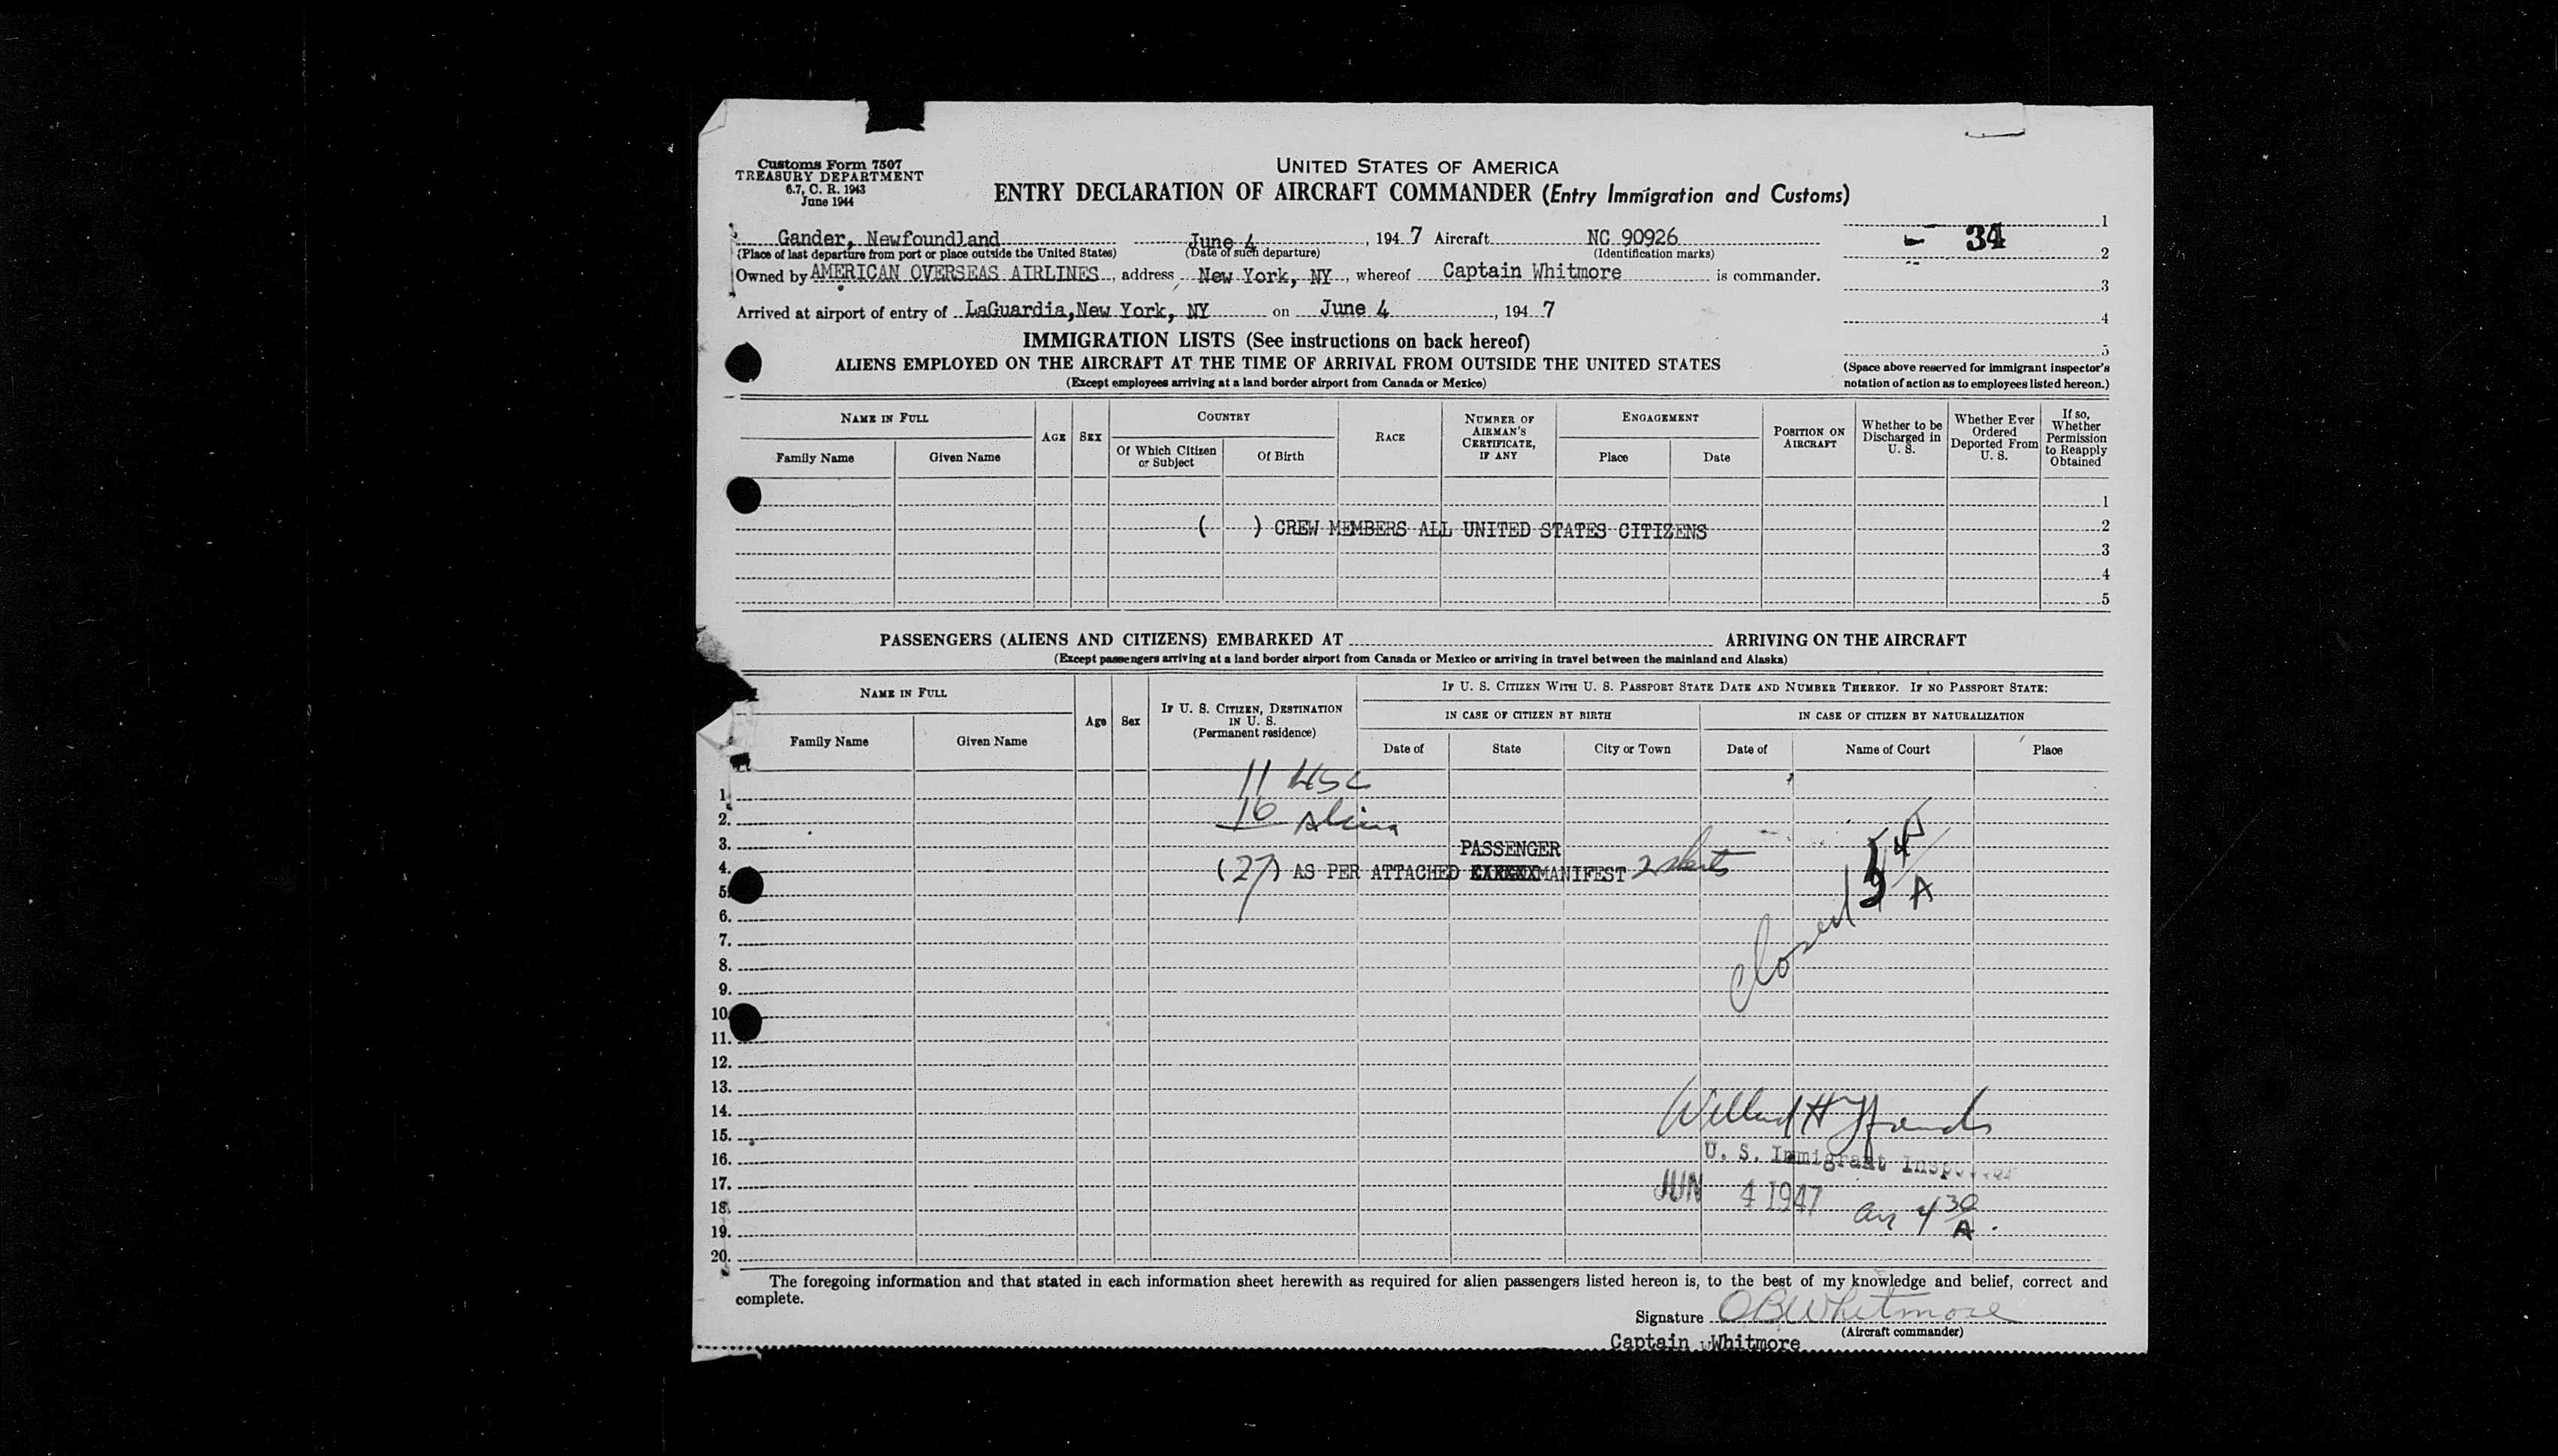 Customs Form 7507
TREASURY DEPARTMENT
6.7, C. R. 1943
June 1944
UNITED STATES OF AMERICA
ENTRY DECLARATION OF AIRCRAFT COMMANDER (Entry Immigration and Customs)
Gander, Newfoundland June 4, 1947 Aircraft NC 90926
(Place of last departure from port or place outside the United States) (Date of such departure) (Identification marks)
Owned by AMERICAN OVERSEAS AIRLINES, address New York, NY, whereof Captain Whitmore is commander.
Arrived at airport of entry of LaGuardia, New York, NY on June 4, 1947
1
- 34
2
3
4
5
(Space above reserved for immigrant inspector's
notation of action as to employees listed hereon.)
IMMIGRATION LISTS (See instructions on back hereof)
ALIENS EMPLOYED ON THE AIRCRAFT AT THE TIME OF ARRIVAL FROM OUTSIDE THE UNITED STATES
(Except employees arriving at a land border airport from Canada or Mexico)
NAME IN FULL
Family Name
Given Name
AGE
SEX
COUNTRY
Of Which Citizen
or Subject
Of Birth
RACE
NUMBER OF
AIRMAN'S
CERTIFICATE,
IF ANY
ENGAGEMENT
Place
Date
POSITION ON
AIRCRAFT
Whether to be
Discharged in
U. S.
Whether Ever
Ordered
Deported From
U. S.
If so,
Whether
Permission
to Reapply
Obtained
1
( ) CREW MEMBERS ALL UNITED STATES CITIZENS 2
3
4
5
PASSENGERS (ALIENS AND CITIZENS) EMBARKED AT ARRIVING ON THE AIRCRAFT
(Except passengers arriving at a land border airport from Canada or Mexico or arriving in travel between the mainland and Alaska)
NAME IN FULL
Family Name
Given Name
Age
Sex
IF U. S. CITIZEN, DESTINATION
IN U. S.
(Permanent residence)
IF U. S. CITIZEN WITH U. S. PASSPORT STATE DATE AND NUMBER THEREOF. IF NO PASSPORT STATE:
IN CASE OF CITIZEN BY BIRTH
Date of
State
City or Town
IN CASE OF CITIZEN BY NATURALIZATION
Date of
Name of Court
Place
11 USC
1.
16 Aliens
2.
3. PASSENGER
4. (27) AS PER ATTACHED MANIFEST 2 sheets
5.
6.
7.
closed
A
8.
9.
10.
11.
12.
13.
14.
15.
16. U. S. Immigrant Inspector
17.
JUN 4 1947
18. arr 4 30
19. A.
20.
The foregoing information and that stated in each information sheet herewith as required for alien passengers listed hereon is, to the best of my knowledge and belief, correct and
complete.
Signature OB Whitmore
(Aircraft commander)
Captain Whitmore